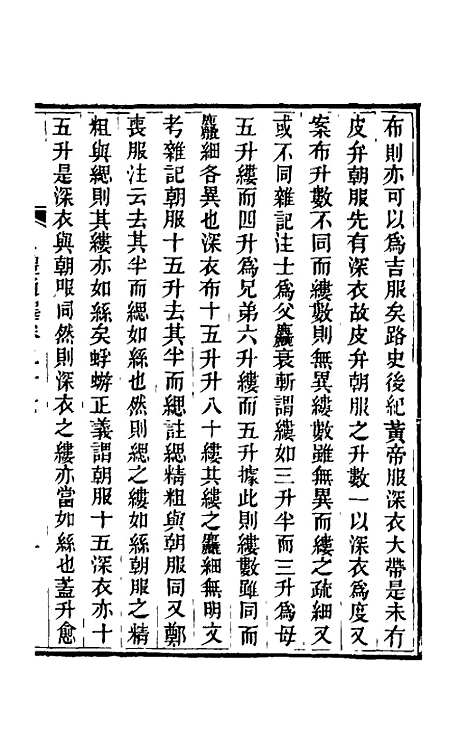 布則亦可以為吉服矣路史後紀黃帝服深衣大帶是未有
皮弁朝服先有深衣故皮弁朝服之升數一以深衣為度又
案布升數不同而縷數則無異縷數雖無異而縷之疏細又
或不同雜記注士為父麤衰斬謂縷如三升半而三升為母
五升縷而四升為兄弟六升縷而五升據此則縷數雖同而
麤細各異也深衣布十五升升八十縷其縷之麤細無明文
考雜記朝服十五升去其半而緦註緦精粗與朝服同又鄭
喪服注云去其半而緦如絲也然則緦之縷如絲朝服之精
粗與緦則其縷亦如絲矣蜉蝣正義謂朝服十五深衣亦十
五升是深衣與朝服同然則深衣之縷亦當如絲也蓋升愈